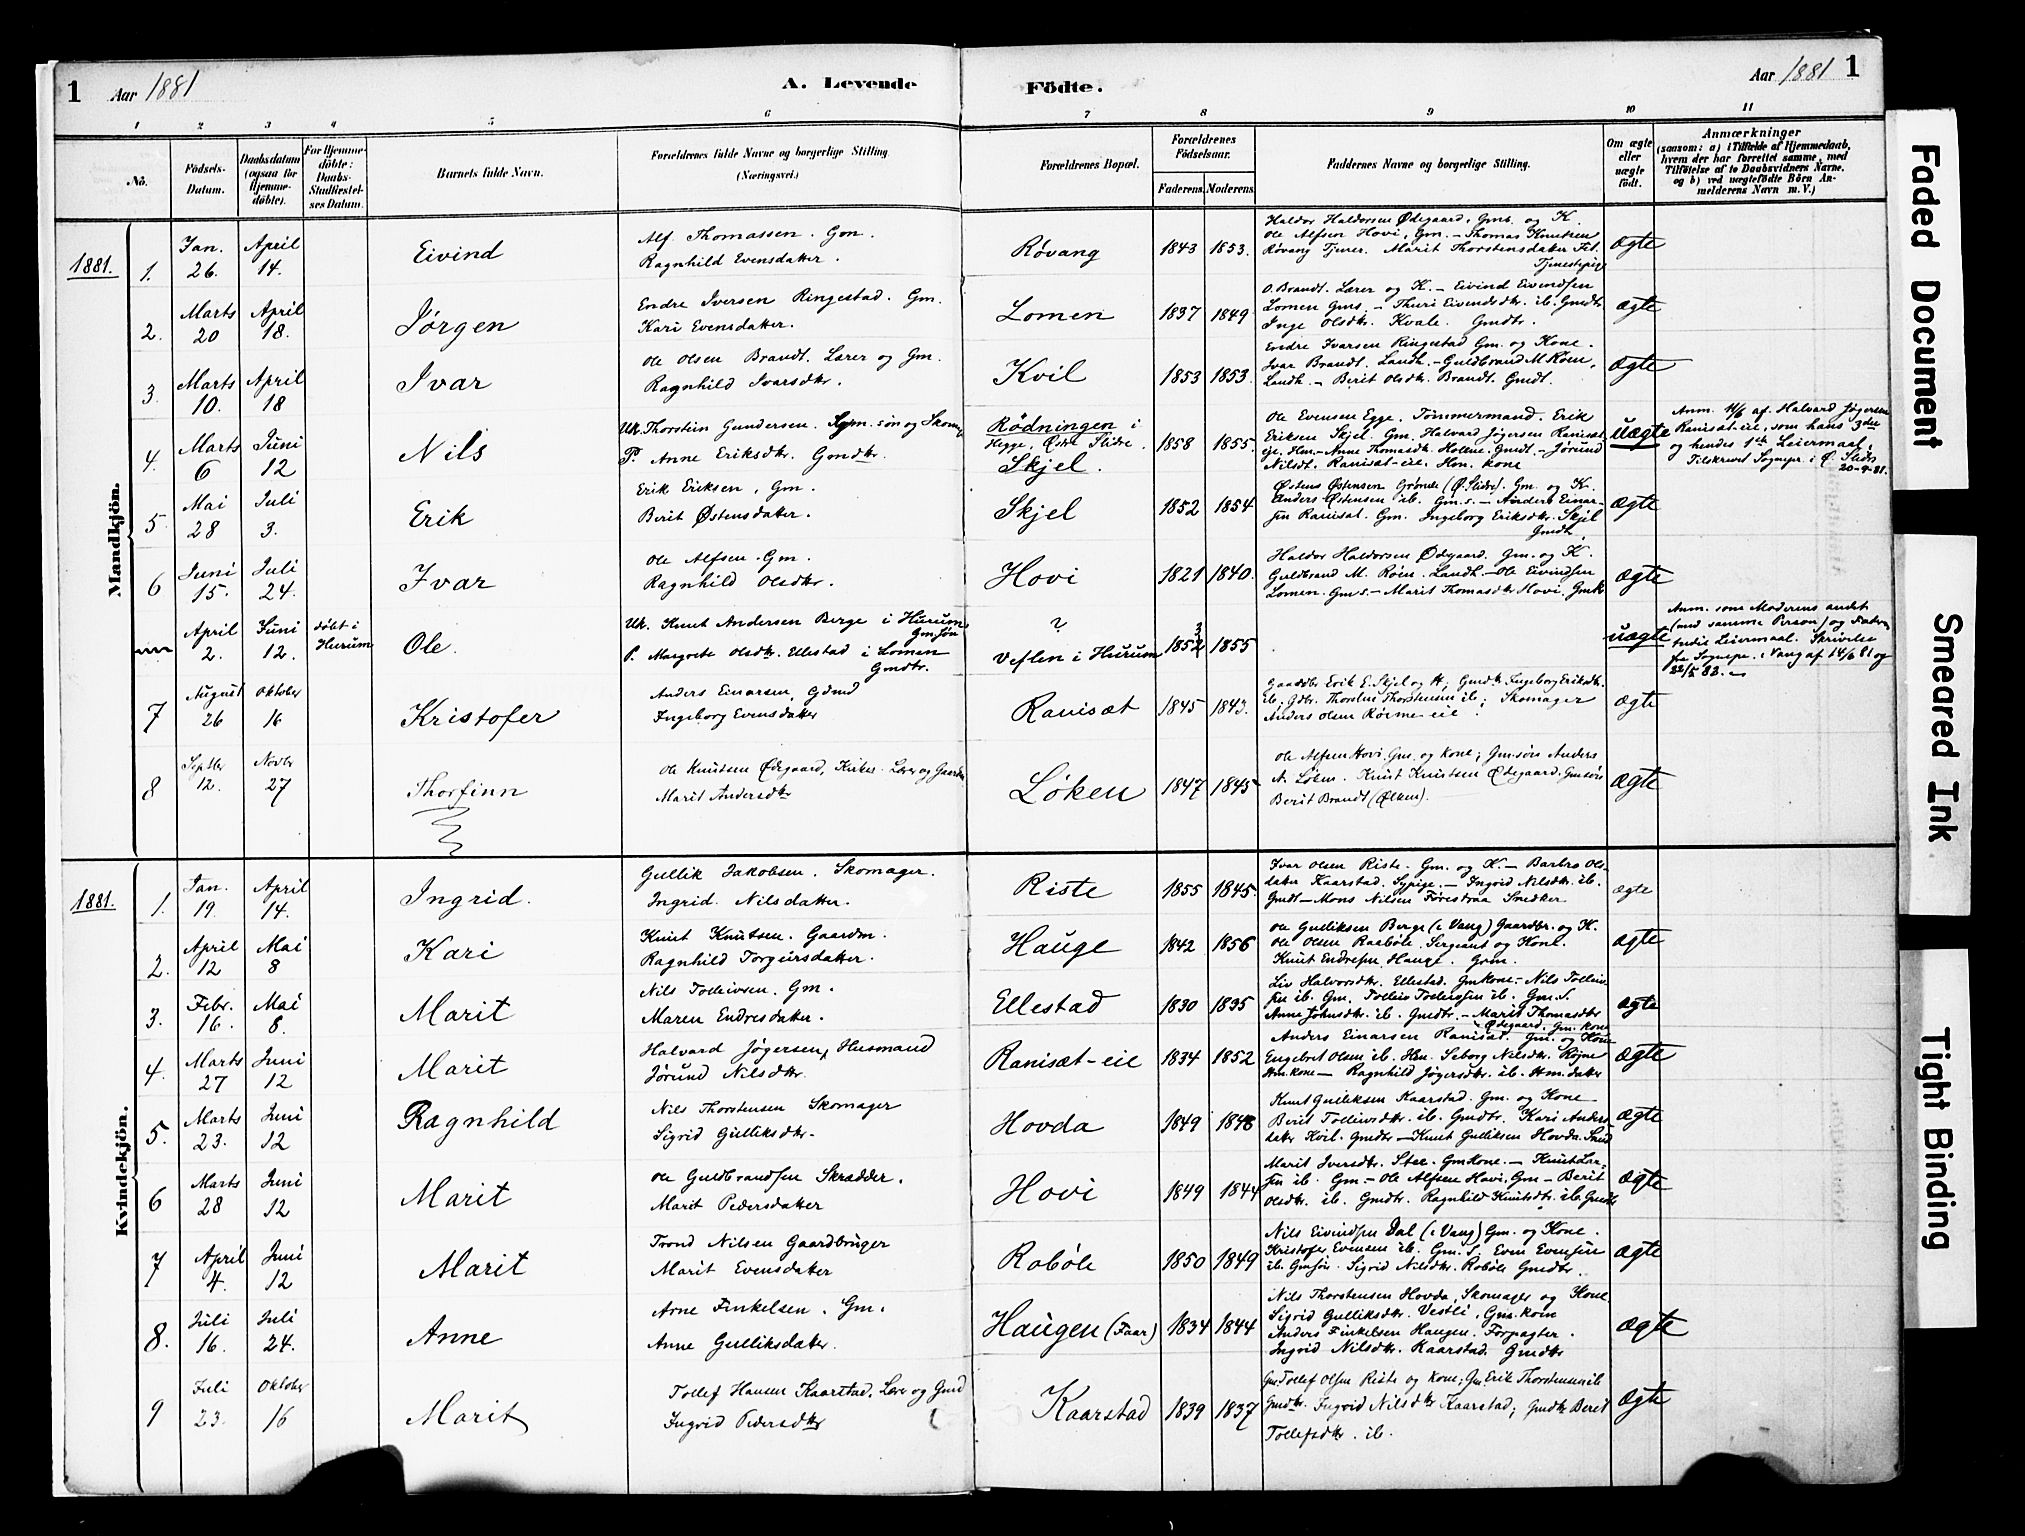 1 Aar 1881 A. Levende Födte. Aar 1881 1
1 2 3 4 5 6 7 8 9 10 11
No. Födsels-Datum. Daabsdatum (ogsaa for Hjemme-döbte). For Hjemme-döbte: Daabs-Stadfæstel-ses Datum. Barnets fulde Navn. Forældrenes fulde Navne og borgerlige Stilling. (Næringsvei.) Forældrenes Bopæl. Forældrenes Födselsaar. Faderens. Moderens. Faddernes Navne og borgerlige Stilling. Om ægte eller uægte födt. Anmærkninger (saasom: a) i Tilfælde af Hjemmedaab, hvem der har forrettet samme, med Tilföielse af to Daabsvidners Navne, og b) ved uægtefödte Börn An-melderens Navn m. V.)
Mandkjön.
1881. 1. Jan. 26. April 14. Eivind Alf Thomassen. Gm.
Ragnhild Evensdatter. Røvang 1843 1853. Haldor Haldorsen Ødegaard, Gm. og K.
Ole Alfsen Hovi, Gm. - Thomas Knutsen
Røvang Tjener. Marit Thorstensdatter
Tjenestepige ægte
2. Marts 20 April 18. Jørgen Endre Iversen Ringestad. Gm.
Kari Evensdatter. Lomen 1837 1849 O. Brandt. Lærer og K. - Eivind Eivindsen
Lomen Gms. - Thuri Eivendsdtr. ib. Gmdtr.
Inge Olsdtr. Kvale. Gmdtr. ægte
3 Marts 10. April 18 Ivar Ole Olsen Brandt. Lærer og Gm.
Ragnhild Ivarsdtr. Kvil 1853 1853. Endre Ivarsen Ringestad Gm. og Kone.
Ivar Brandt. Landh. - Guldbrand M. Røen,
Landh. - Berit Olsdtr. Brandt. Gmdt. ægte
4. Marts 6 Juni 12 Nils Uk. Thorstein Gundersen. Gm. søn og Skom
P. Anne Eriksdtr. Gmdtr. Rødningen i
Hegge, Østre Slidre.
Skjel. 1858 1855. Ole Evensen Egge. Tømmermand. Erik
Eriksen Skjel. Gm. Halvard Jøgersen Ranisat
eje. Hm. - Anne Thomasdtr. Gmdt. - Jørund
Nilsdt. Ranisat-eie. Hm. kone uægte Anm. 11/6 af Halvard Jøgersen
Ranisat-eie, som hans 3die
og hendes 1ste Leiermaal.
Tilskrevet Sognepr. i Ø. Slidre
20-9-81.
5. Mai 28 Juli 3. Erik Erik Eriksen, Gm.
Berit Østensdatter. Skjel 1852 1854 Østens Østensen Grønde (Ø. Slidre). Gm. og K.
Anders Østensen ib. Gm. s. - Anders Einar-
sen Ranisat. Gm. Ingeborg Eriksdtr. Skjel
Gmdtr. ægte
6 Juni 15. Juli 24. Ivar Ole Alfsen. Gm.
Ragnhild Olsdtr. Hovi 1821 1840. Haldor Haldorsen Ødegaard. Gm. og K.
Guldbrand M. Røen. Landh. - Ole Eivindsen
Lomen. Gm s. - Marit Thomasdtr Hovi, Gmk ægte
April 2. Juni 12. døbt i Hurum Ole Uk. Knut Andersen Berge i Hurum
Gmsøn
P. Margrete Olsdtr. Ellestad i Lomen
Gmdtr. ?
Veflen i Hurum 1852 1855 uægte Anm. som Moderens andet
(med samme Person) og Faderens
tredie Leiermaal. Skrivelse
fra Sognepr. i Vang af 14/6 81 og
22/5 82.
7 August 26 Oktober 16 Kristofer Anders Einarsen, Gdmd
Ingeborg Evensdatter Ranisæt 1845 1843. Gaardbr Erik E. Skjel og K; Gmdtr. Ingeborg Eriksdtr.
ib; Gdbr. Thorsten Thorstensen ib; Skomager
Anders Olsen Røvme-eie. ægte
8 Septbr 12. Novbr 27 Thorfinn Ole Knutsen Ødegaard, Kirkes. Lærer og Gaardm
Marit Andersdtr Løken 1847 1845 Ole Alfsen Hovi. Gm. og kone; Gm.søn Anders
A. Løken. Knut Knutsen Ødegaard. Gmsøn
Berit Brandt (Ølken). ægte
Kvindekjön.
1881. 1. Jan. 19. April 14. Ingrid. Gullik Jakobsen. Skomager.
Ingrid. Nilsdatter. Riste 1855 1845. Ivar Olsen Riste. Gm. og K. - Barbro Ols-
datter Kaarstad. Sypige. - Ingrid Nilsdtr. ib.
Gmdt - Mons Nilsen Førestraa Snedker ægte
2. April 12 Mai 8 Kari Knut Knutsen. Gaardm.
Ragnhild Torgersdatter. Hauge 1842 1856 Ole Gulliksen Berge (i Vang) Gaardbr. og K.
Ole Olsen Raabøle. Sergeant og Kone.
Knut Endresen Hauge. Gm. ægte
3. Febr. 16. Mai 8. Marit Nils Tolleivsen. Gm.
Maren Endresdatter. Ellestad 1830 1835 Liv Halvorsdtr. Ellestad. Gmkone - Nils Tolleiv-
sen ib. Gm. Tolleiv Tolleivsen ib. Gm. S.
Anne Johnsdtr. ib. Gmdtr. - Marit Thomasdtr
Ødegaard. Gm. kone ægte
4. Marts 27 Juni 12 Marit Halvard Jøgersen, Husmand
Jørund Nilsdtr. Ranisæt-eie 1834 1852 Anders Einarsen Ranisat. Gm. og Kone
Engebret Olsen ib. Hm. Seborg Nilsdtr. Røjne
Hm. kone - Ragnhild Jøgersdtr. ib. Hm. datter ægte
5. Marts 23. Juni 12 Ragnhild Nils Thorstensen Skomager
Sigrid Gulliksdtr. Hovda 1849 1848 Knut Gulliksen Kaarstad. Gm. og Kone
Berit Tolleivsdtr. ib. Gmdtr. Kari Anders-
datter Kvil. Gmdtr - Knut Gulliksen Hovda. Smed ægte
6 Marts 28 Juni 12 Marit Ole Guldbrandsen Skrædder.
Marit Pedersdatter Hovi 1849 1844 Marit Iversdtr. Gmkone. - Knut
sen ib. Gm - Ole Alfsen Hovi. Gm - Berit
Olsdtr. ib. Gmdtr. Ragnhild Knutsdtr. ib. Gmdtr ægte
7 April 4. Juni 12 Marit Trond Nilsen Gaardbruger
Marit Evensdatter Robøle 1850 1849 Nils Eivindsen Dal (i Vang) Gm. og Kone.
Kristofer Evensen ib. Gm. S. Even Evensen
ib. Gmsøn. Sigrid Nilsdtr. Robøle Gmdtr. ægte
8. Juli 16. Juli 24. Anne Arne Finkelsen. Gm.
Anne Gulliksdatter. Haugen (Faar) 1834 1844 Nils Thorstensen Hovda, Skomager og Kone
Sigrid Gulliksdtr. Vestli, Gm. kone
Anders Finkelsen Haugen. Forpagter.
Ingrid Nilsdtr. Kaarstad. Gmdtr ægte
9 Juli 23. Oktober 16 Marit Tollef Hansen Kaarstad, Lærer og Gmd
Ingrid Pedersdtr Kaarstad 1839 1837 Gm. Tollef Olsen Riste og kone; Gm Erik Thorstensen ib
Gmdtr. Ingrid Nilsdtr Kaarstad; Gmdtr Berit
Tollefsdtr. ib. ægte
Faded Document
Smeared Ink
Tight Binding